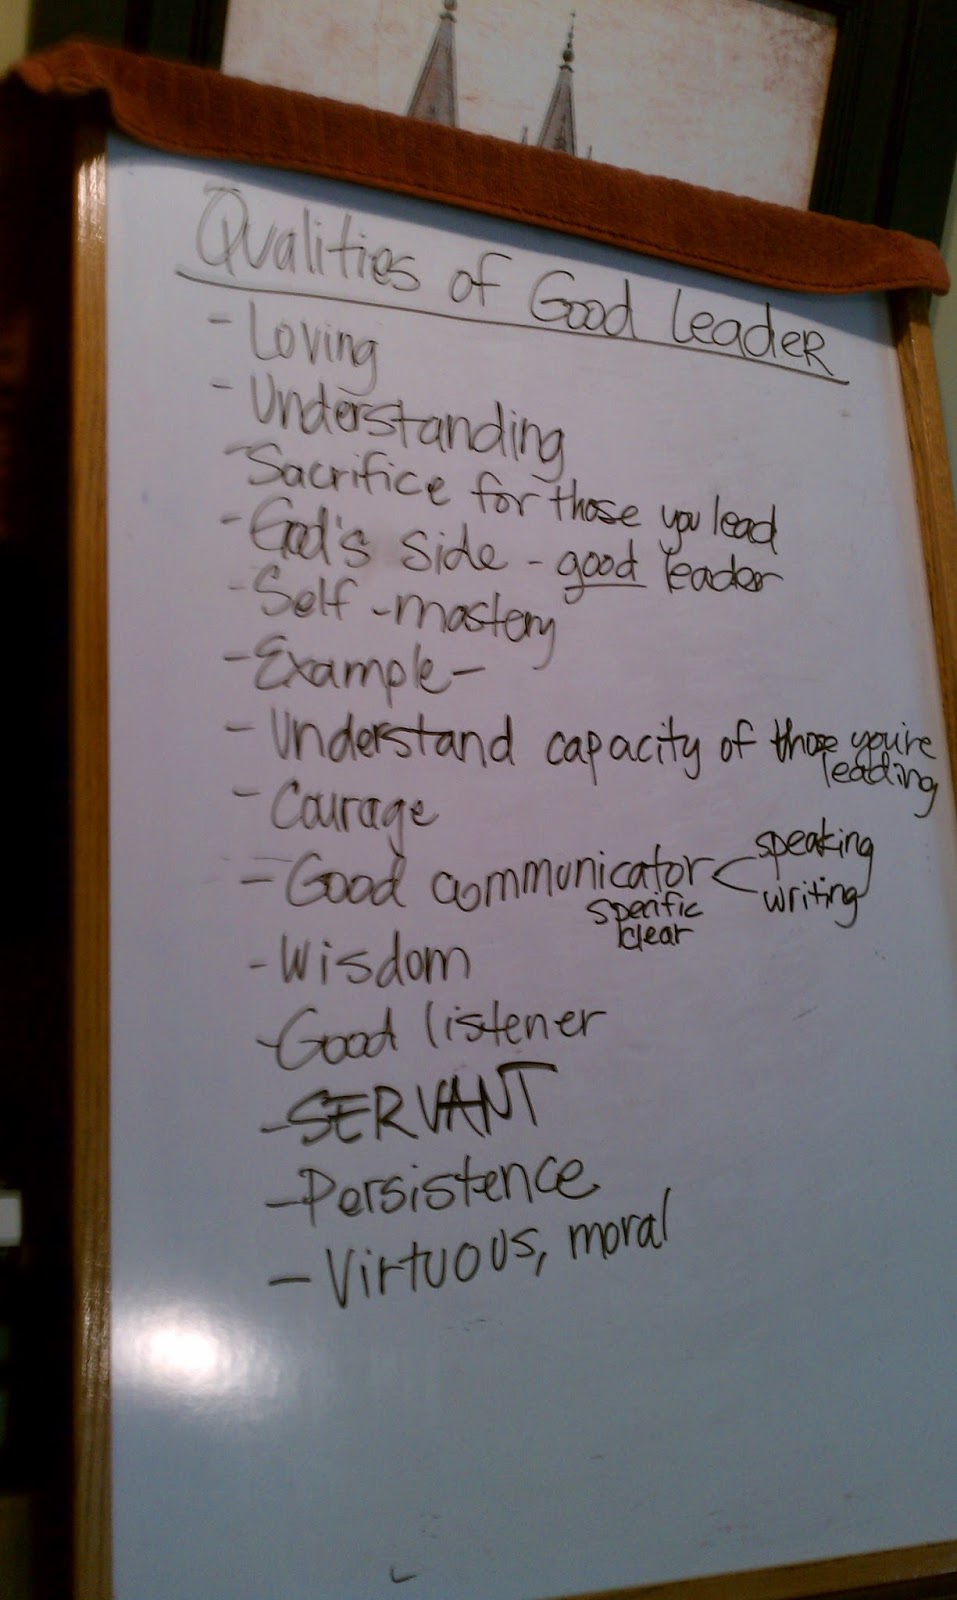 Qualities of Good Leader
- Loving
- Understanding
- Sacrifice for those you lead
- God's side - good leader
- Self-mastery
- Example -
- Understand capacity of those you're
leading
- Courage
- Good communicator < speaking
writing
specific
clear
- Wisdom
- Good listener
- SERVANT
- Persistence
- Virtuous, moral